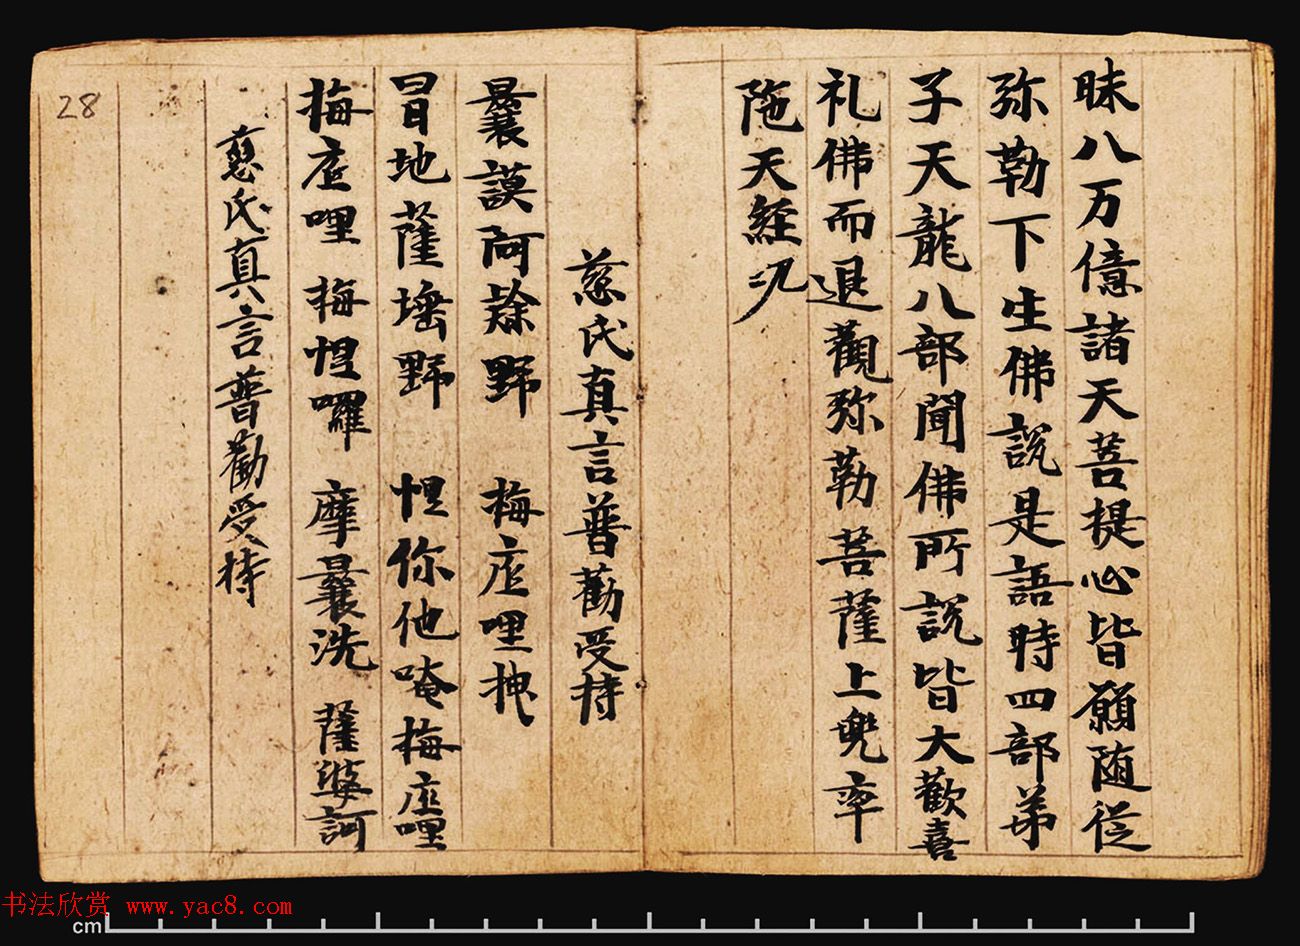 昧八万億諸天菩提心皆願随從
弥勒下生佛說是語時四部弟
子天龍八部聞佛所說皆大歡喜
礼佛而退觀弥勒菩薩上兜率
陁天經
慈氏真言普勸受持
曩謨阿 野 梅底哩
冒地薩 野 怛你他唵梅底哩
梅底哩 梅怛囉 摩曩洗 薩婆訶
慈氏真言普勸受持
28
书法欣赏 www.yac8.com
cm